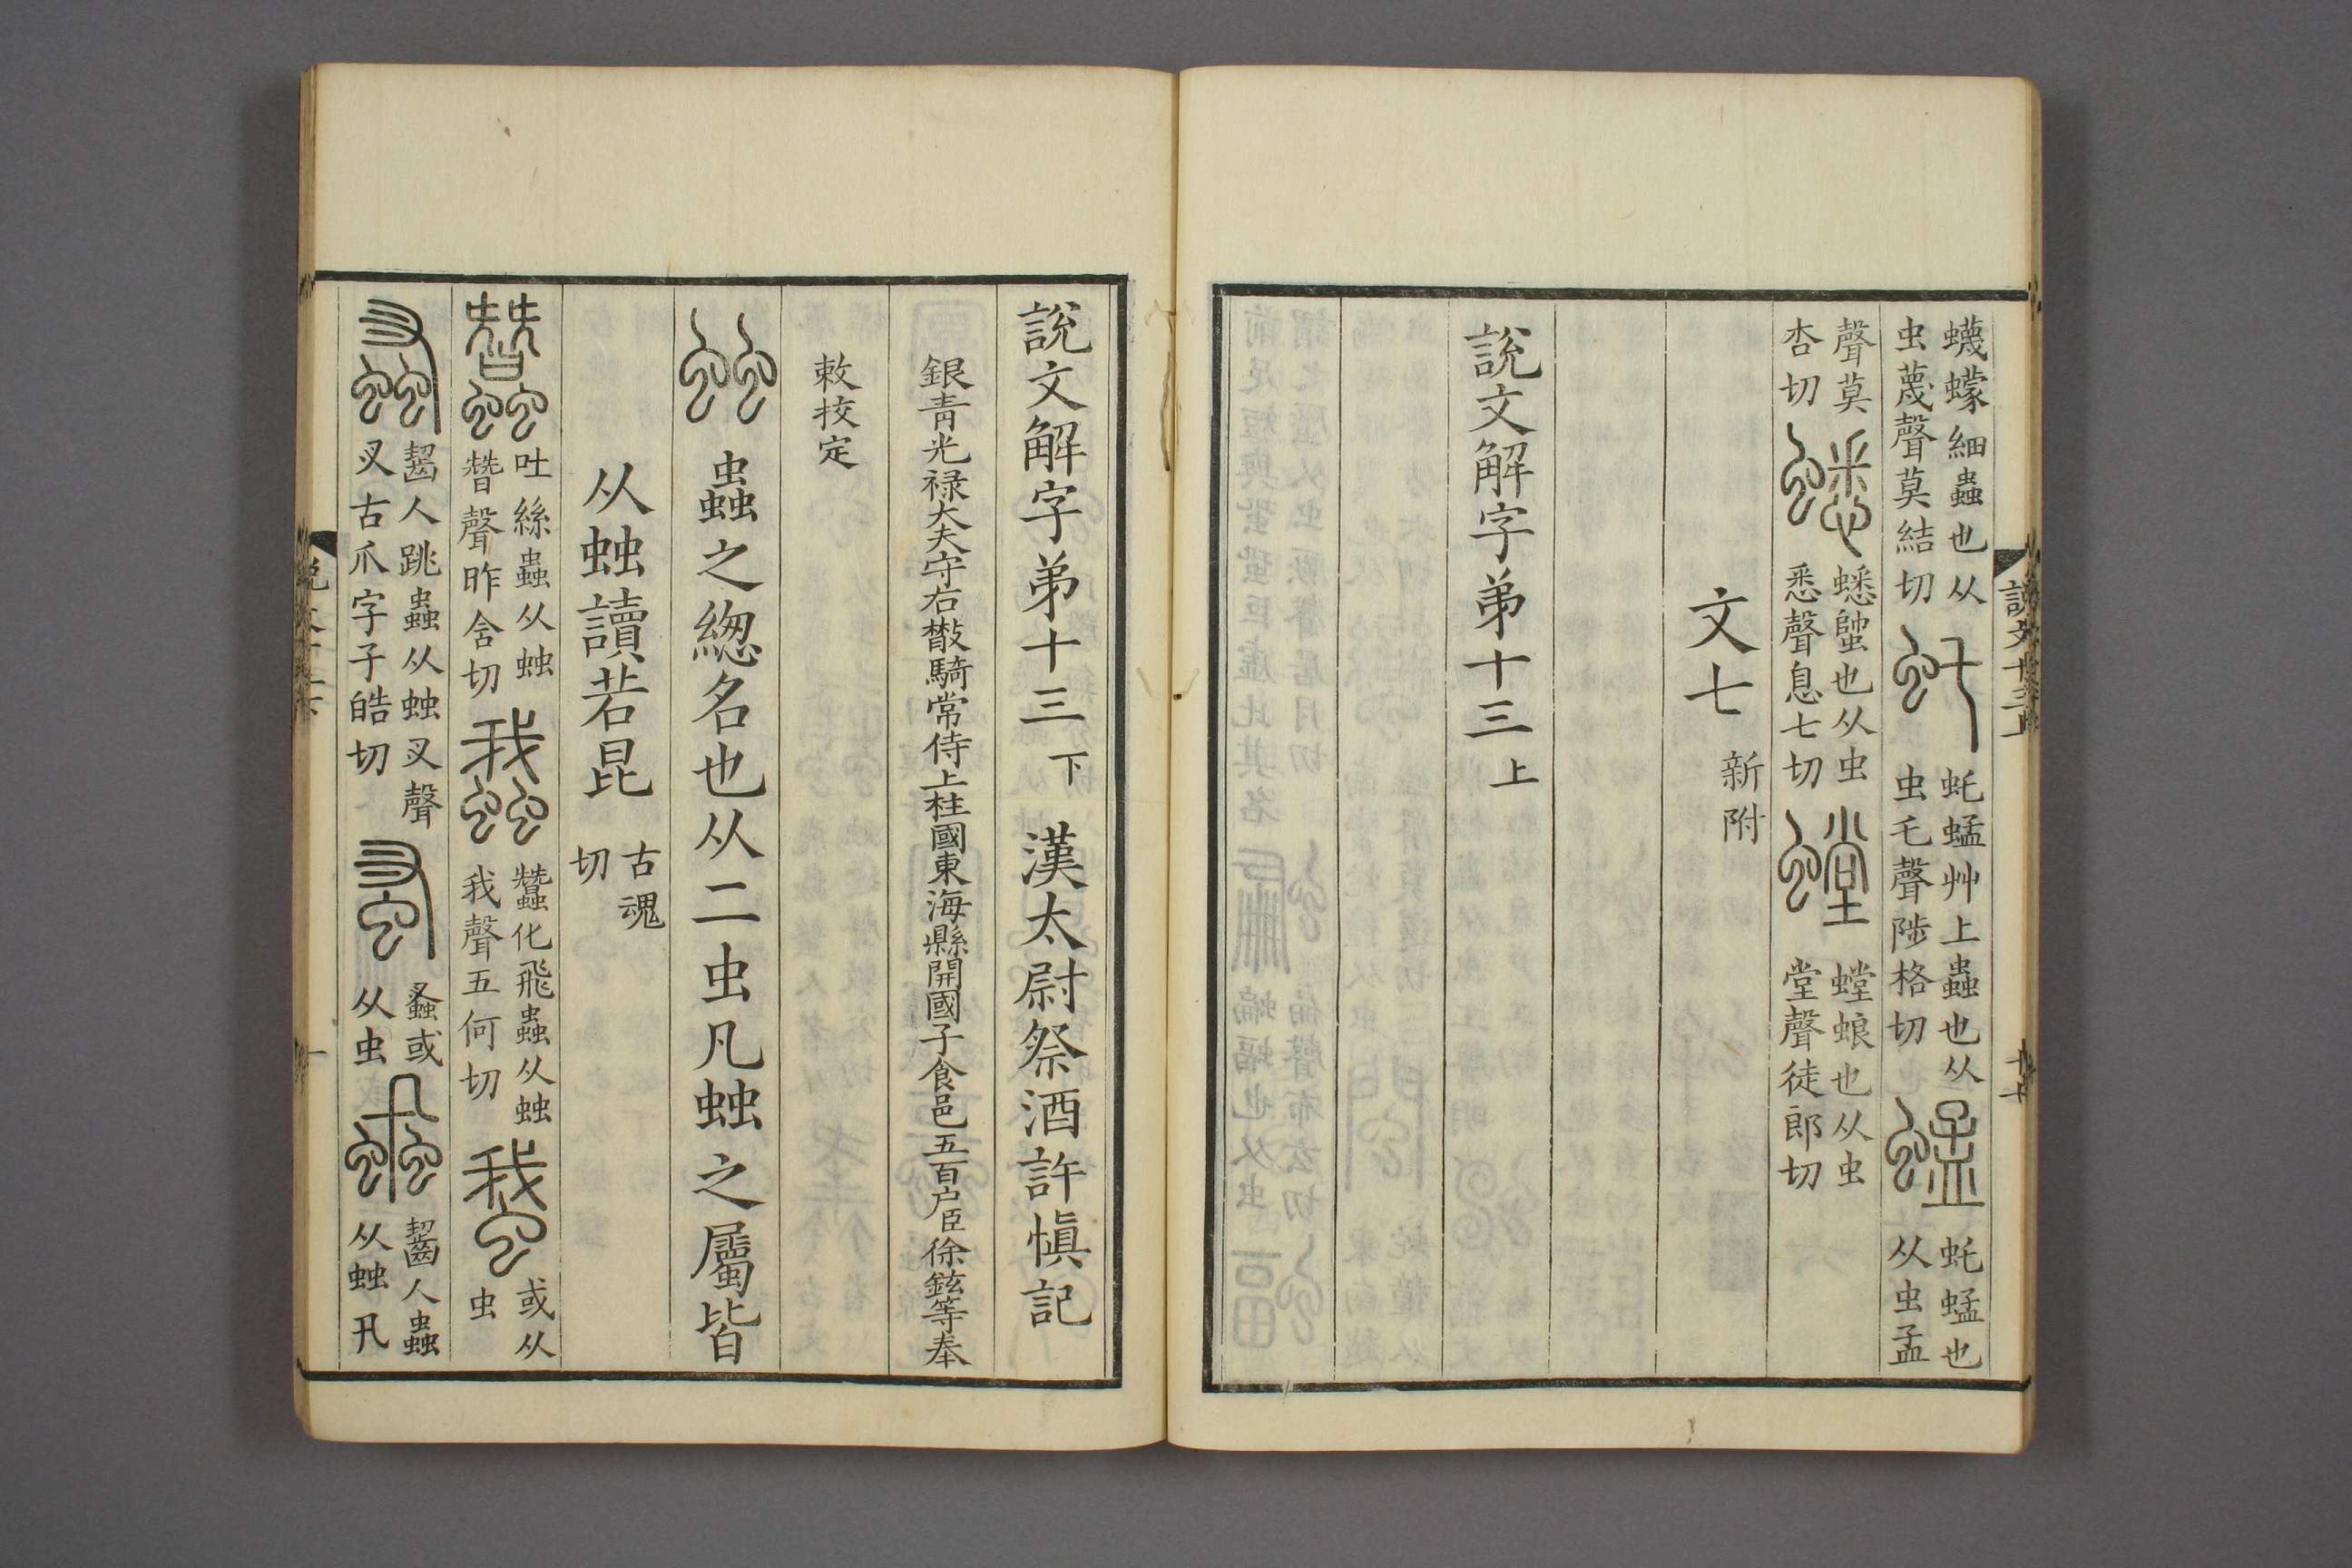 蠛蠓細蟲也从
虫蔑聲莫結切
虴
虴蜢艸上蟲也从
虫乇聲陟格切
蜢
虴蜢也
从虫孟
聲莫
杏切
蟋
蟋䗢也从虫
悉聲息七切
螳
螳蜋也从虫
堂聲徒郎切
文七 新附
說文解字弟十三上
說文十三上
十七
說文解字弟十三下 漢太尉祭酒許慎記
銀青光祿大夫守右散騎常侍上柱國東海縣開國子食邑五百戶臣徐鉉等奉
敕挍定
䖵 蟲之緫名也从二虫凡䖵之屬皆
从䖵讀若昆 古魂切
蠶
吐絲蟲从䖵
朁聲昨含切
䗸
蠶化飛蟲从䖵
我聲五何切
蛾
或从
虫
䘇
齧人跳蟲从䖵叉聲
叉古爪字子皓切
蚤
䘇或
从虫
䖝
齧人蟲
从䖵卂
說文十三下
一